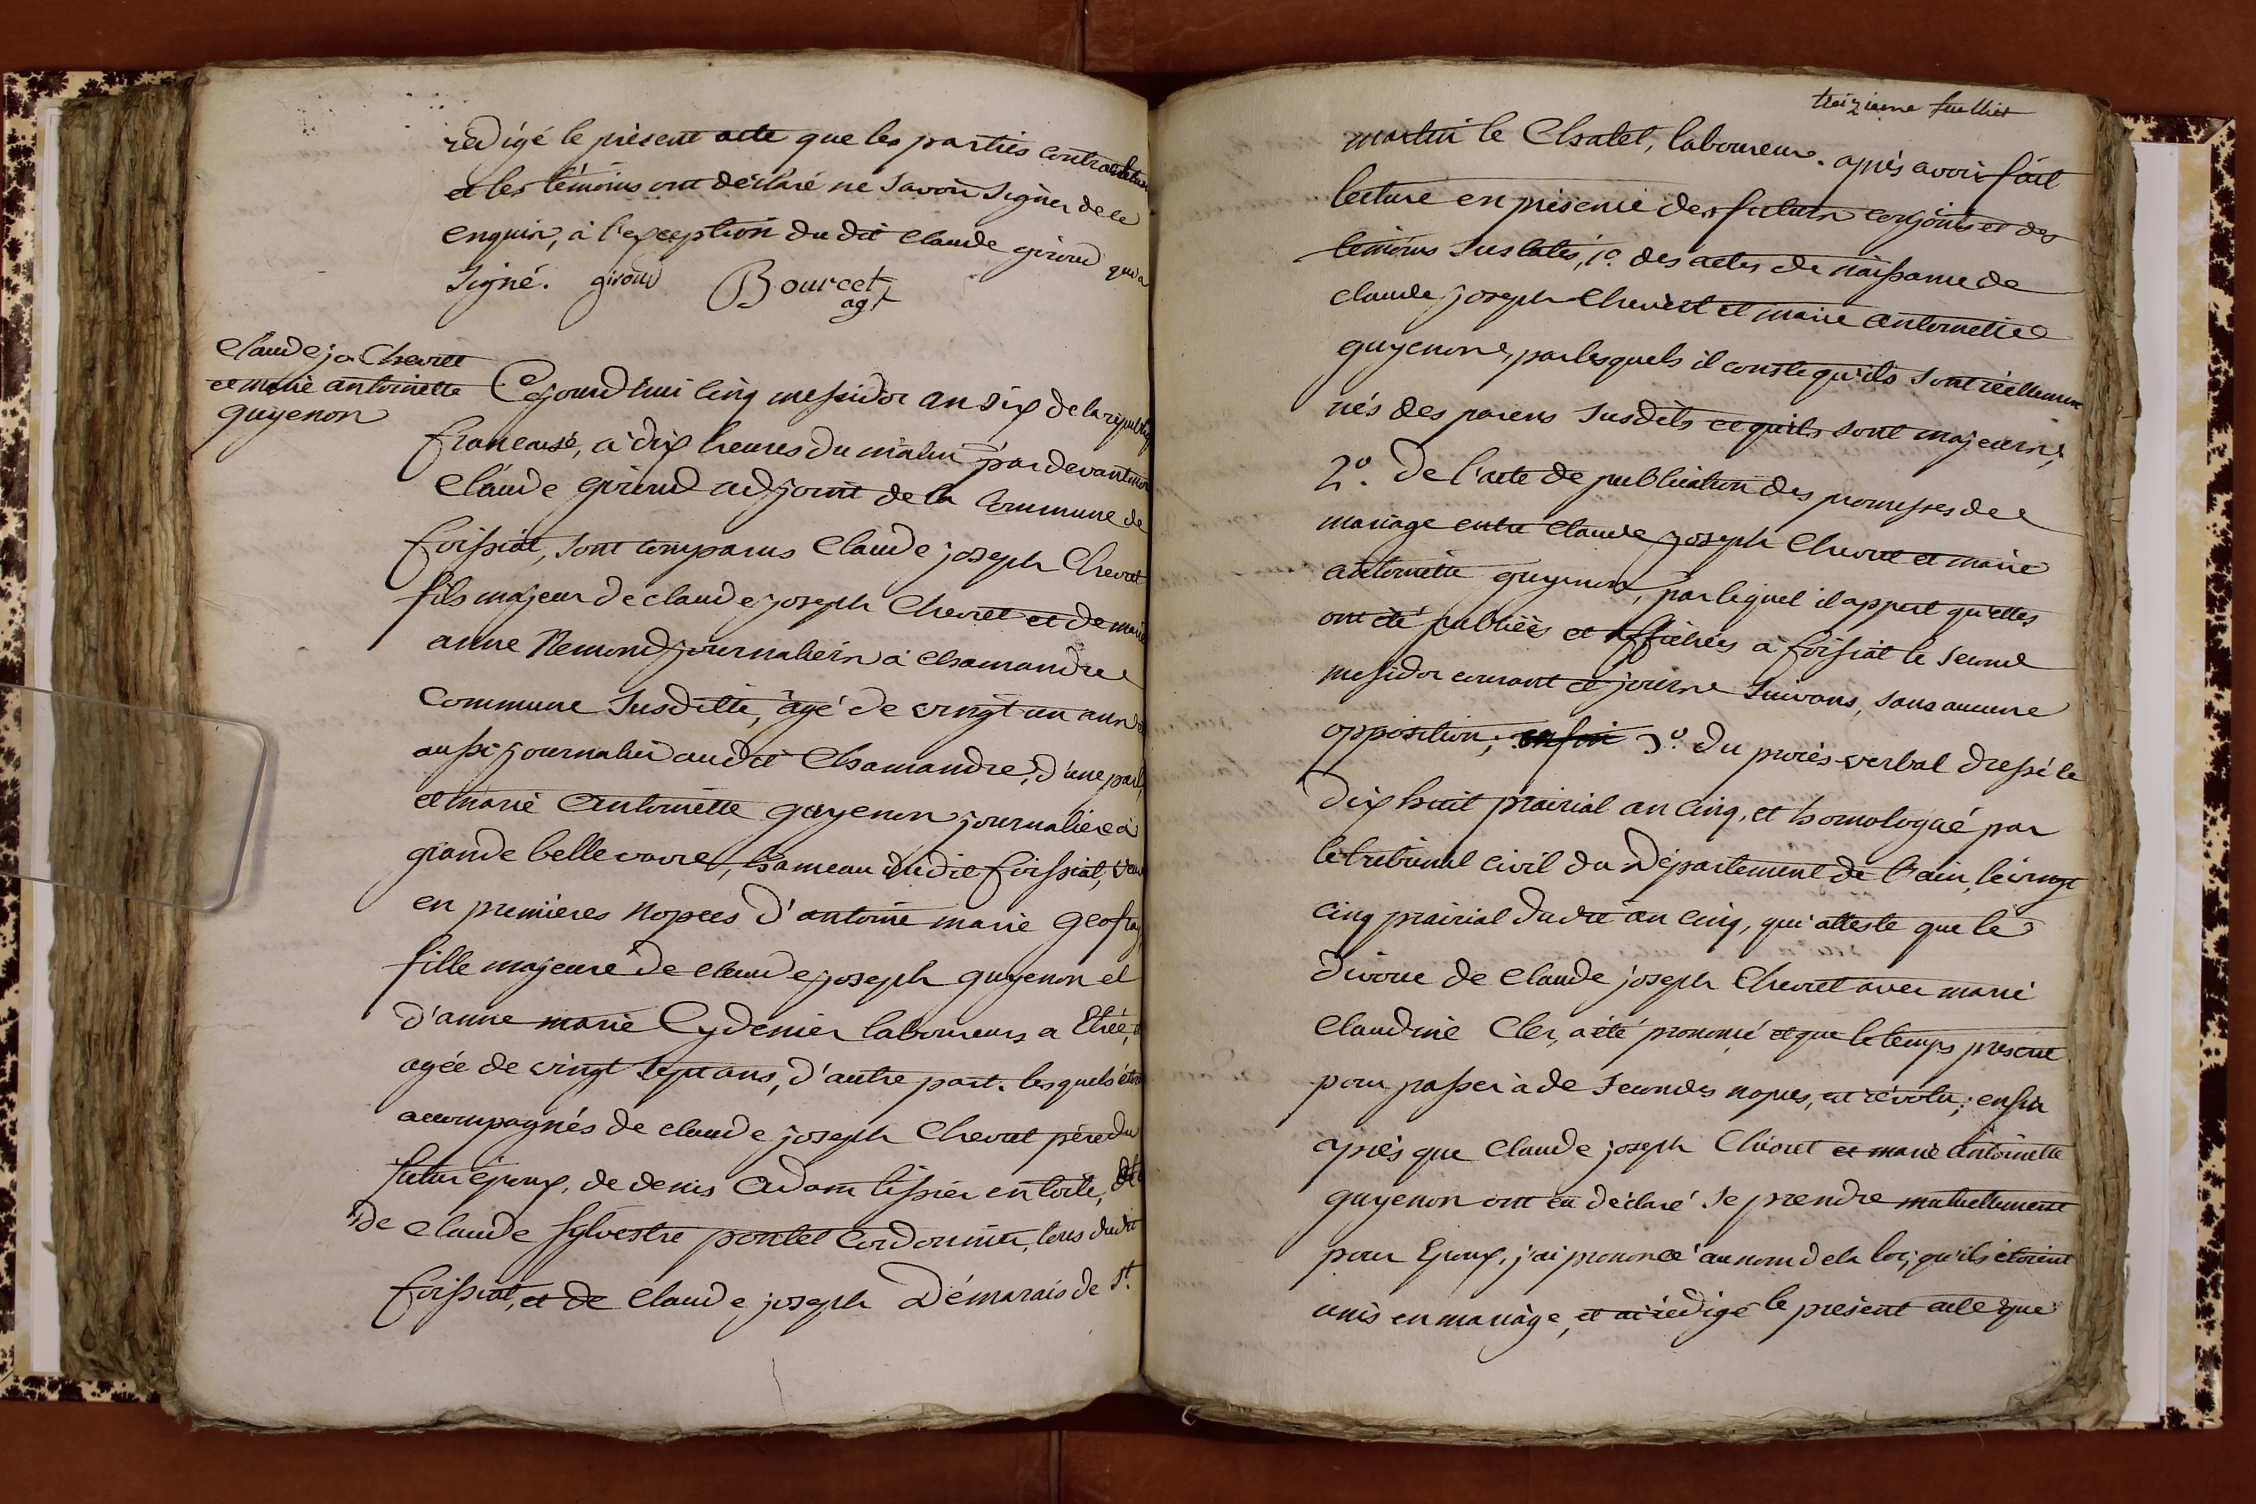 rédigé le présent acte que les parties contractantes
et les témoins ont déclaré ne savoir signer de ce
enquis, à l'exception du dit Claude giroud qui a
signé. giroud Bourcet
agt
Claude jo. Chevret
et marie antoinette
guyenon
Cejourd'hui cinq messidor an six de la république
francaise, à dix heures du matin pardevant moi
Claude giroud adjoint de la Commune de
foissiat, sont comparus Claude joseph Chevret
fils majeur de claude joseph Chevret et de marie
anne Remond journaliers à chamandre
Commune susditte, âgé de vingt un ans
aussi journalier audit Chamandre, d'une part,
et marie Antoinette guyenon journaliere à
grande bellevavre, hameau dudit foissiat, veuve
en premieres nopces d'antoine marie Geofray
fille majeure de claude joseph guyenon et
d'anne marie Cydenier laboureurs a Etrée,
agée de vingt sept ans, d'autre part. lesquels étoient
accompagnés de claude joseph Chevret père du
futur époux, de denis Adam tissier en toile,
de claude sylvestre pontet Cordonnier, tous dudit
foissiat, et de Claude joseph Démarais de St.
treizieme feuillet
martin le Chatel, laboureur. après avoir fait
lecture en présence des futurs conjoints et des
témoins suslatés, 1o. des actes de naissance de
claude joseph Chevret et marie antoinette
guyenon, par lesquels il conste qu'ils sont réellement
nés des parens susdits et qu'ils sont majeurs;
2o. de l'acte de publication des promesses de
mariage entre Claude joseph Chevret et marie
antoinette guyenon, par lequel il appert qu'elles
ont été publiées et affichées à foissiat le second
messidor courant et jours suivans, sans aucune
opposition; enfin 3o. du procès-verbal dressé le
dix huit prairial an cinq, et homologué par
le tribunal civil du Département de l'ain, le vingt
cinq prairial dudit an cinq, qui atteste que le
divorce de Claude joseph Chevret avec marie
Claudine Cler, a été prononcé et que le temps prescrit
pour passer à de secondes nopces, est révolu; enfin
après que Claude joseph Chevret et marie Antoinette
guyenon ont eu déclaré se prendre mutuellement
pour Epoux, j'ai prononcé au nom de la loi, qu'ils étoient
unis en mariage, et ai rédigé le présent acte que